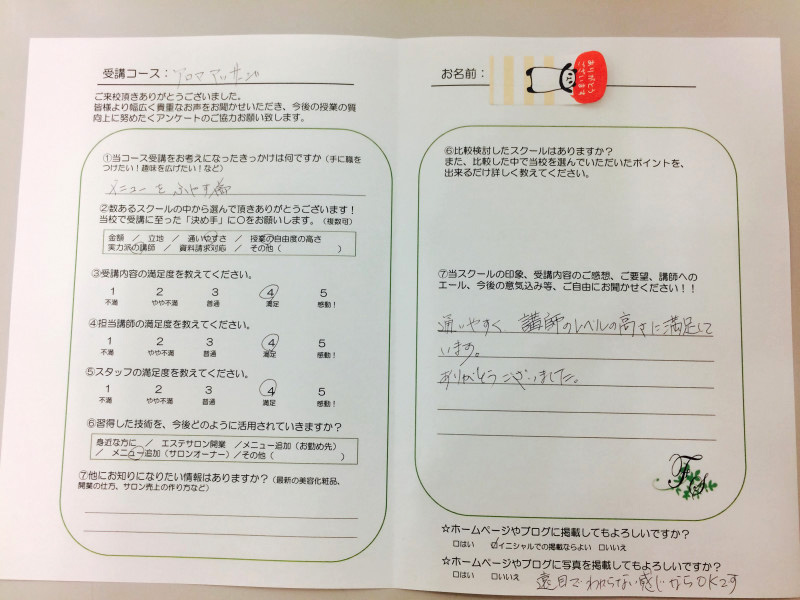 受講コース：アロマアッサージ
ご来校頂きありがとうございました。
皆様より幅広く貴重なお声をお聞かせいただき、今後の授業の質
向上に努めたくアンケートのご協力お願い致します。
①当コース受講をお考えになったきっかけは何ですか（手に職を
つけたい！趣味を広げたい！など）
メニューをふやす為
②数あるスクールの中から選んで頂きありがとうございます！
当校で受講に至った「決め手」に〇をお願いします。（複数可）
金額 ／ 立地 ／ 通いやすさ ／ 授業の自由度の高さ
実力派の講師 ／ 資料請求対応 ／ その他（ ）
③受講内容の満足度を教えてください。
1 2 3 4 5
不満 やや不満 普通 満足 感動！
④担当講師の満足度を教えてください。
1 2 3 4 5
不満 やや不満 普通 満足 感動！
⑤スタッフの満足度を教えてください。
1 2 3 4 5
不満 やや不満 普通 満足 感動！
⑥習得した技術を、今後どのように活用されていきますか？
身近な方に ／ エステサロン開業 ／メニュー追加（お勤め先）
／ メニュー追加（サロンオーナー）／その他（ ）
⑦他にお知りになりたい情報はありますか？（最新の美容化粧品、
開業の仕方、サロン売上の作り方など）
お名前：
ありがとう
ございます
⑥比較検討したスクールはありますか？
また、比較した中で当校を選んでいただいたポイントを、
出来るだけ詳しく教えてください。
⑦当スクールの印象、受講内容のご感想、ご要望、講師への
エール、今後の意気込み等、ご自由にお聞かせください！！
通いやすく 講師のレベルの高さに満足して
います。
ありがとうございました。
☆ホームページやブログに掲載してもよろしいですか？
□はい ☑イニシャルでの掲載ならよい □いいえ
☆ホームページやブログに写真を掲載してもよろしいですか？
□はい □いいえ 遠目でわからない感じならOKです